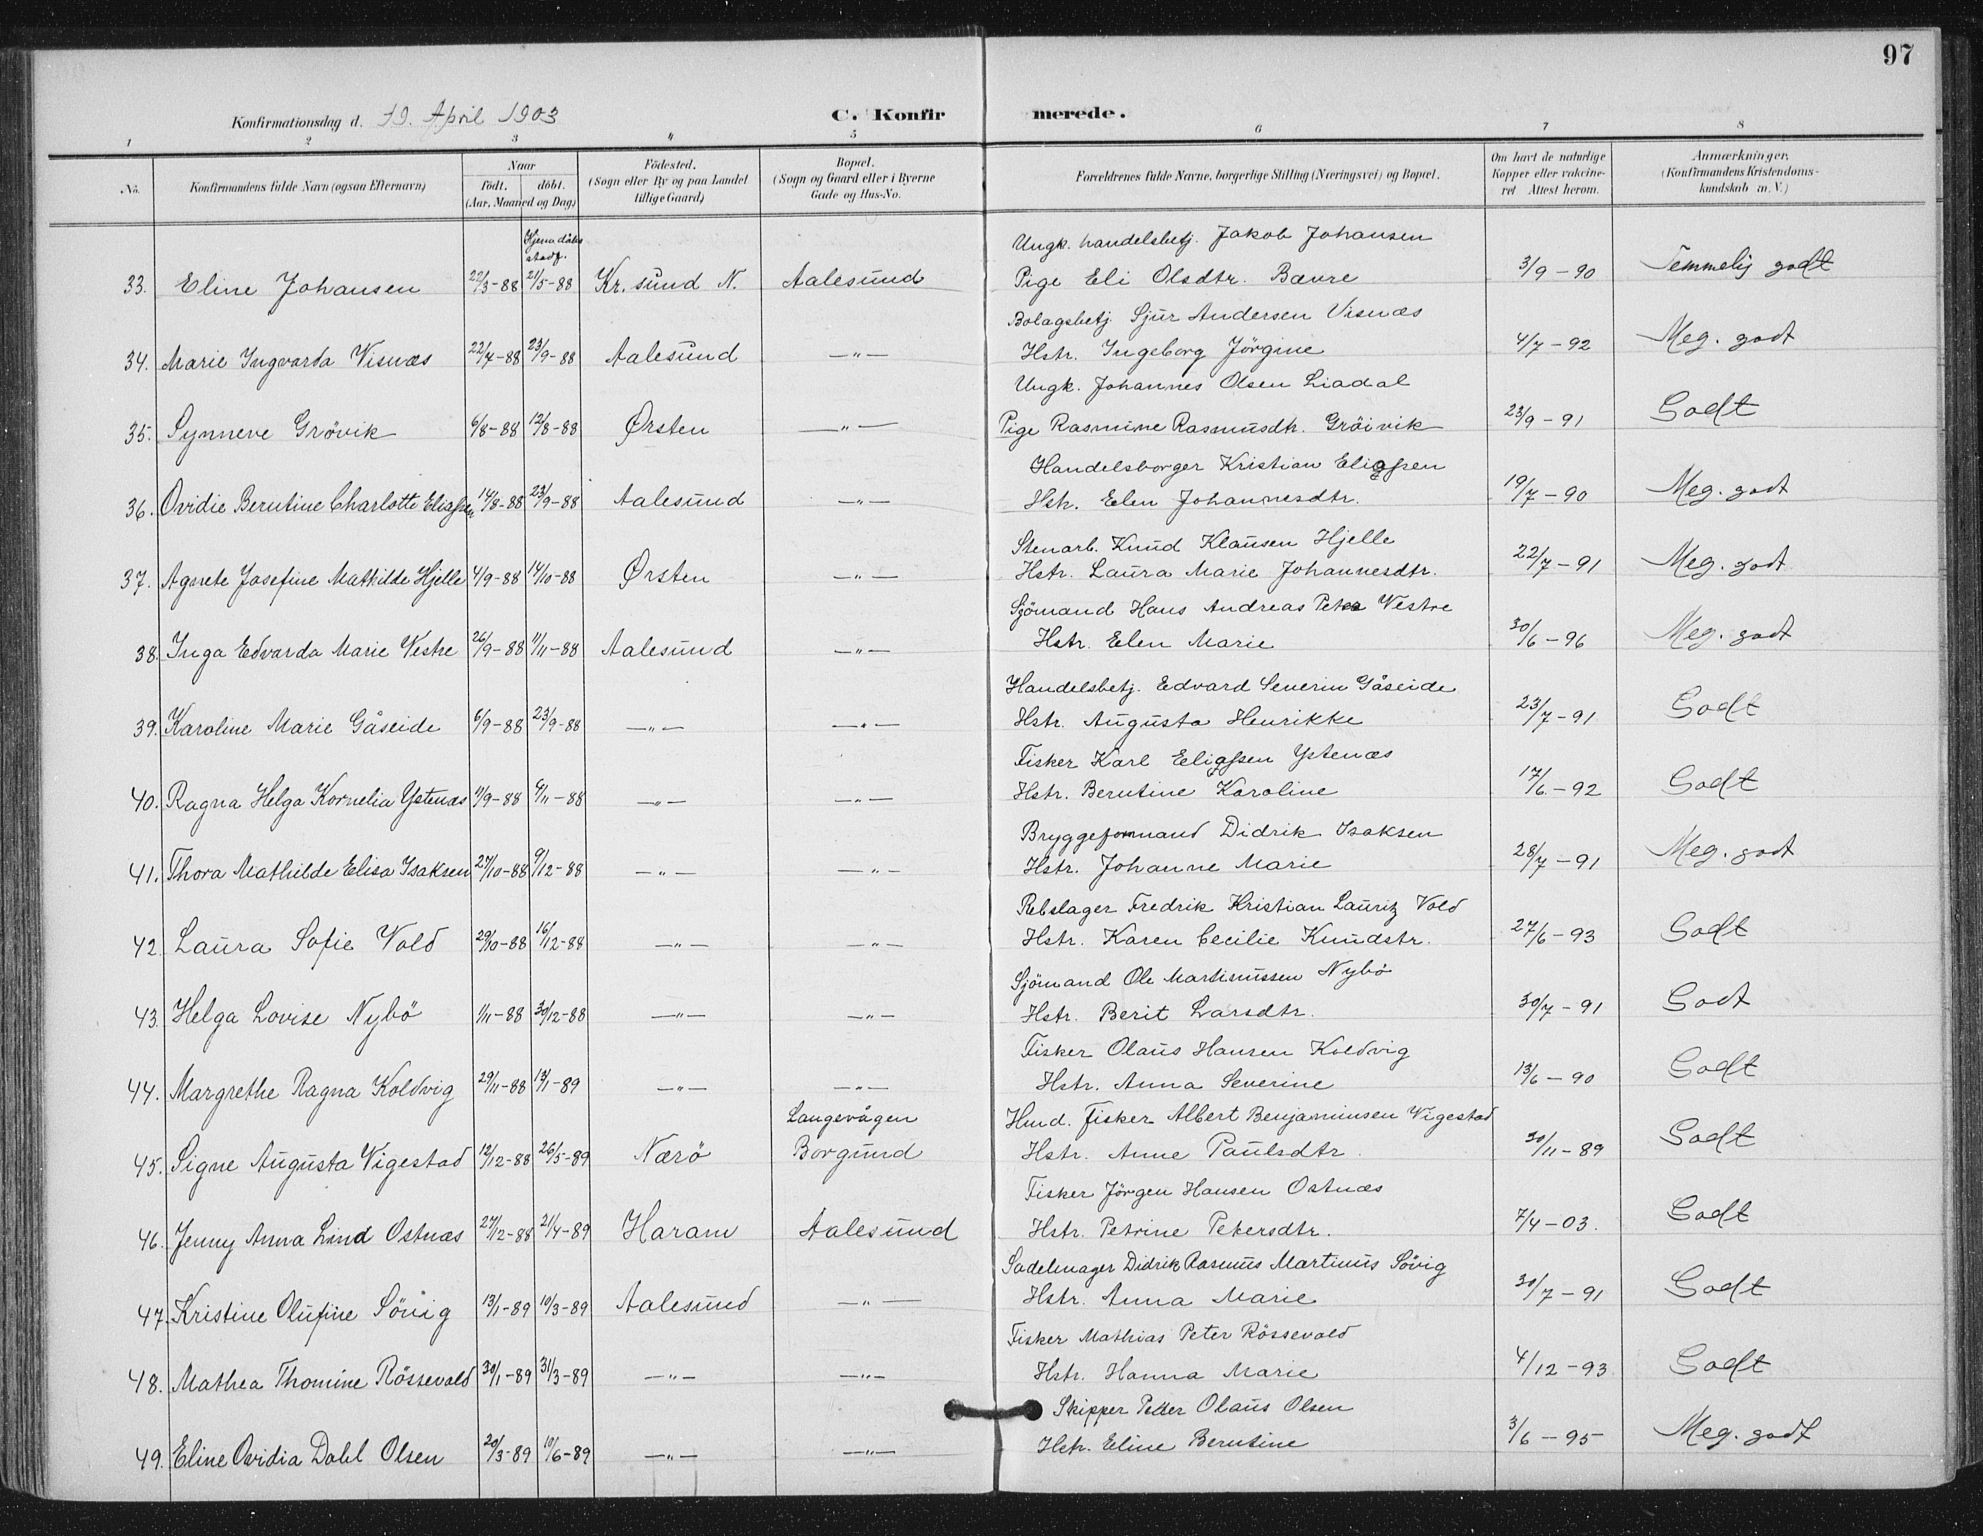 97
Konfirmationsdag d. 19. April 1903 C. Konfirmerede.
1 2 3 4 5 6 7 8
No. Konfirmandens fulde Navn (ogsaa Efternavn) Naar födt. döbt. (Aar, Maaned og Dag) Födested. (Sogn eller By og paa Landet tillige Gaard) Bopæl. (Sogn og Gaard eller i Byerne Gade og Hus-No. Forældrenes fulde Navne, borgerlige Stilling (Næringsvei) og Bopæl. Om havt de naturlige Kopper eller vakcineret Attest herom. Anmærkninger. (Konfirmandens Kristendomskundskab m. V.)
Hjemdåbs stadf.
Ungk. handelsbetj. Jakob Johansen
33. Eline Johansen 22/3-88 21/5-88 Kr.sund N. Aalesund Pige Eli Olsdtr. Bævre 3/9-90 Temmelig godt
Bolagsbetj. Sjur Andersen Visnæs
34. Marie Ingvarda Visnæs 22/4-88 23/9-88 Aalesund —"— Hstr. Ingeborg Jörgine 4/7-92 Meg. godt
Ungk. Johannes Olsen Liadal
35. Synneve Grövik 6/8-88 12/8-88 Ørsten —"— Pige Rasmine Rasmusdtr. Gröivik 23/9-91 Godt
Handelsborger Kristian Eliassen
36. Ovidie Berntine Charlotte Eliassen 14/8-88 23/9-88 Aalesund —"— Hstr. Elen Johannesdtr. 19/7-90 Meg. godt
Stenarb. Knud Klausen Hjelle
37. Agnete Josefine Mathilde Hjelle 4/9-88 14/10-88 Ørsten —"— Hstr. Laura Marie Johannesdtr. 22/7-91 Meg. godt
Sjömand Hans Andreas Peter Vestre
38. Inga Edvarda Marie Vestre 26/9-88 11/11-88 Aalesund —"— Hstr. Elen Marie 30/6-96 Meg. godt
Handelsbetj. Edvard Severin Gåseide
39. Karoline Marie Gåseide 6/9-88 23/9-88 —"— —"— Hstr. Augusta Henrikke 23/7-91 Godt
Fisker Karl Eliassen Ystenæs
40. Ragna Helga Kornelia Ystenæs 11/9-88 6/11-88 —"— —"— Hstr. Berntine Karoline 17/6-92 Godt
Bryggeformand Didrik Isaksen
41. Thora Mathilde Elisa Isaksen 27/10-88 9/12-88 —"— —"— Hstr. Johanne Marie 28/7-91 Meg. godt
Rebslager Fredrik Kristian Lauritz Vold
42. Laura Sofie Vold 29/10-88 16/12-88 —"— —"— Hstr. Karen Cecilie Knudstr. 27/6-93 Godt
Sjömand Ole Martinussen Nybö
43. Helga Lovise Nybö 1/11-88 30/12-88 —"— —"— Hstr. Berit Larsdtr. 30/7-91 Godt
Fisker Olaus Hansen Koldvig
44. Margrethe Ragna Koldvig 29/11-88 13/1-89 —"— —"— Hstr. Anna Severine 13/6-90 Godt
Langevågen Hmd. Fisker Albert Benjaminsen Vigestad
45. Signe Augusta Vigestad 12/12-88 26/5-89 Nærö Borgund Hstr. Anne Paulsdtr. 30/11-89 Godt
Fisker Jörgen Hansen Ostnæs
46. Jenny Anna Lind Ostnæs 27/12-88 21/4-89 Haram Aalesund Hstr. Petrine Petersdtr. 7/4-03. Godt
Sadelmager Didrik Rasmus Martinus Sövig
47. Kristine Olufine Sövig 13/1-89 10/3-89 Aalesund —"— Hstr. Anna Marie 30/7-91 Godt
Fisker Mathias Peter Rössevold
48. Mathea Thomine Rössevold 30/1-89 31/3-89 —"— —"— Hstr. Hanna Marie 4/12-93 Godt
Skipper Peder Olaus Olsen
49. Eline Ovidia Dahl Olsen 20/3-89 10/6-89 —"— —"— Hstr. Eline Berntine 3/6-95 Meg. godt